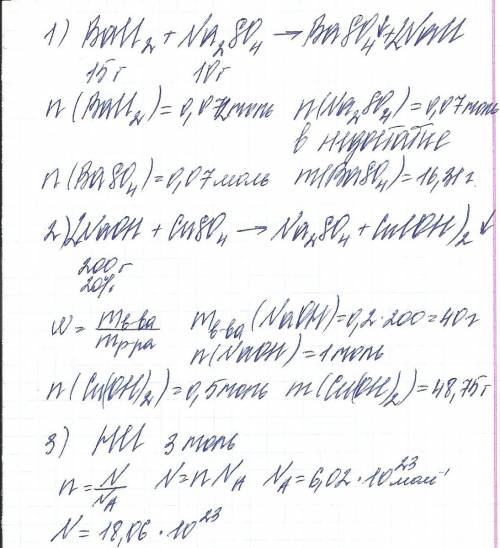 1) BaCl₂ + Na₂SO₄ → BaSO₄↓ + 2NaCl
15 г 10 г
n(BaCl₂) = 0,072 моль n(Na₂SO₄) = 0,07 моль
в недостатке
n(BaSO₄) = 0,07 моль m(BaSO₄) = 16,31 г.
2) 2NaOH + CuSO₄ → Na₂SO₄ + Cu(OH)₂↓
200 г
20%
w = mв-ва/mр-ра mв-ва(NaOH) = 0,2·200 = 40 г
n(NaOH) = 1 моль
n(Cu(OH)₂) = 0,5 моль m(Cu(OH)₂) = 48,75 г
3) HCl 3 моль
n = N/Nᴀ N = n Nᴀ Nᴀ = 6,02·10²³ моль⁻¹
N = 18,06·10²³